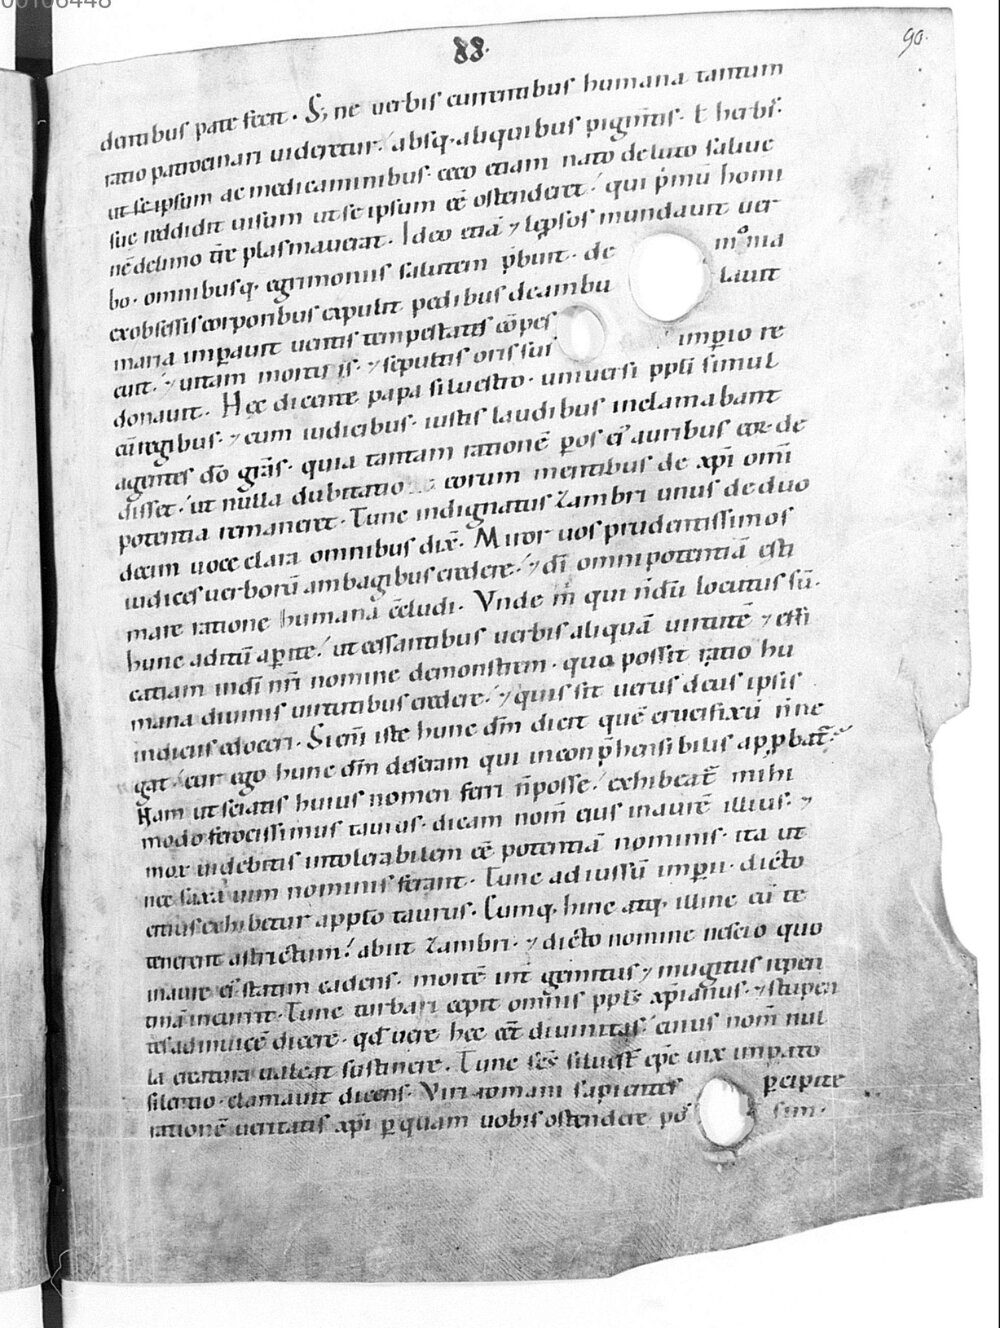 00106448
88.
90.
dentibus pate fecit. S; ne uerbis currentibus humana tantum
ratio patrocinari uideretur. absq. aliquibus pigmtis. t herbis.
ut se ipsum ac medicaminibus. ceco etiam nato de luto saliue
sue reddidit uisum ut se ipsum ee ostenderet. qui pmu homi
ne de limo tre plasmauerat. Ideo etia & lepsos mundauit uer
bo. omnibusq. egrimoniis salutem pbuit. de monia
ex obsessis corporibus expulit pedibus deambu lauit
maria imperauit uentis tempestates copes
cuit. & uitam mortuis. & sepultis oris sui imperio re
donauit. Hec dicente papa siluestro. uniuersi ppli simul
cu regibus. & cum iudicibus. iustis laudibus inclamabant
agentes do gras. quia tantam ratione pos ei auribus eor de
disset. ut nulla dubitatio eorum mentibus de xpi omi
potentia remaneret. Tunc indignatus Zambri unus de duo
decim uoce clara omnibus dix. Miror uos prudentissimos
iudices uerboru ambagibus credere. & di omnipotentia esti
mare ratione humana celudi. Vnde m qui ndu locutus su.
hunc aditu aperite. ut cessantibus uerbis aliqua uirtute & effi
catiam in di nri nomine demonstrem. quo possit ratio hu
mana diuinis uirtutibus credere. & quis sit uerus deus ipsis
indiciis edoceri. Si eni iste hunc dm dicit que crucifixu n ne
gat. cur ego hunc dm deseram qui inconphensibilis appbat.
Nam ut sciatis huius nomen ferri n posse. exhibeat mihi
modo ferocissimus taurus. dicam nom eius in aure illius. &
mox uidebitis intolerabilem ee potentia nominis. ita ut
nec saxa uim nominis ferant. Tunc ad iussu imperii. dicto
citius exhibetur appto taurus. Cumq. hinc atq. illinc eu te
nerent astrictum. abiit Zambri. & dicto nomine nescio quo
in aure ei statim cadens. morte int gemitus & mugitus repen
tina incurrit. Tunc turbari cepit omnis ppls xpianus. & stupen
tes adinuice dicere. qd uere hec eet diuinitas. cuius nom nul
la creatura ualeat sustinere. Tunc scs siluest epc uix imperato
silentio. clamauit dicens. Viri romani sapientes percipite
ratione ueritatis xpi p quam uobis ostendere pos sim.